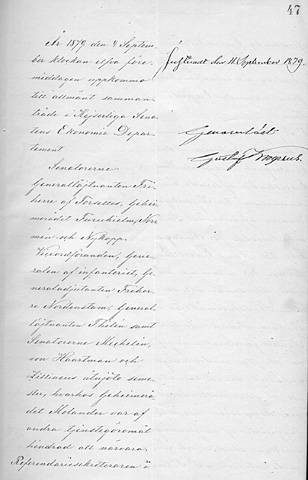 47
År 1879 den 4 Septem-
ber klockan elfva före-
middagen uppkommo
till allmänt samman-
träde i Kejserliga Sena-
tens Ekonomie Depar-
tement
Senatorerne
Generallöjtnanten Fri-
herre af Forselles, Gehei-
merådet Furuhjelm, Nor-
mén och Nykopp.
Viceordföranden, Gene-
ralen af infanteriet, Ge-
neraladjutanten Friher-
re Nordenstam, General-
löjtnanten Thelin samt
Senatorerne Mechelin,
von Haartman och
Zilliacus åtnjöto seme-
ster, hvarhos Geheimerå-
det Molander var af
andra tjenstgöromål
hindrad att närvara.
Referendariesekreteraren i
Justeradt den 11 September 1879.
Genomläst
Gustaf